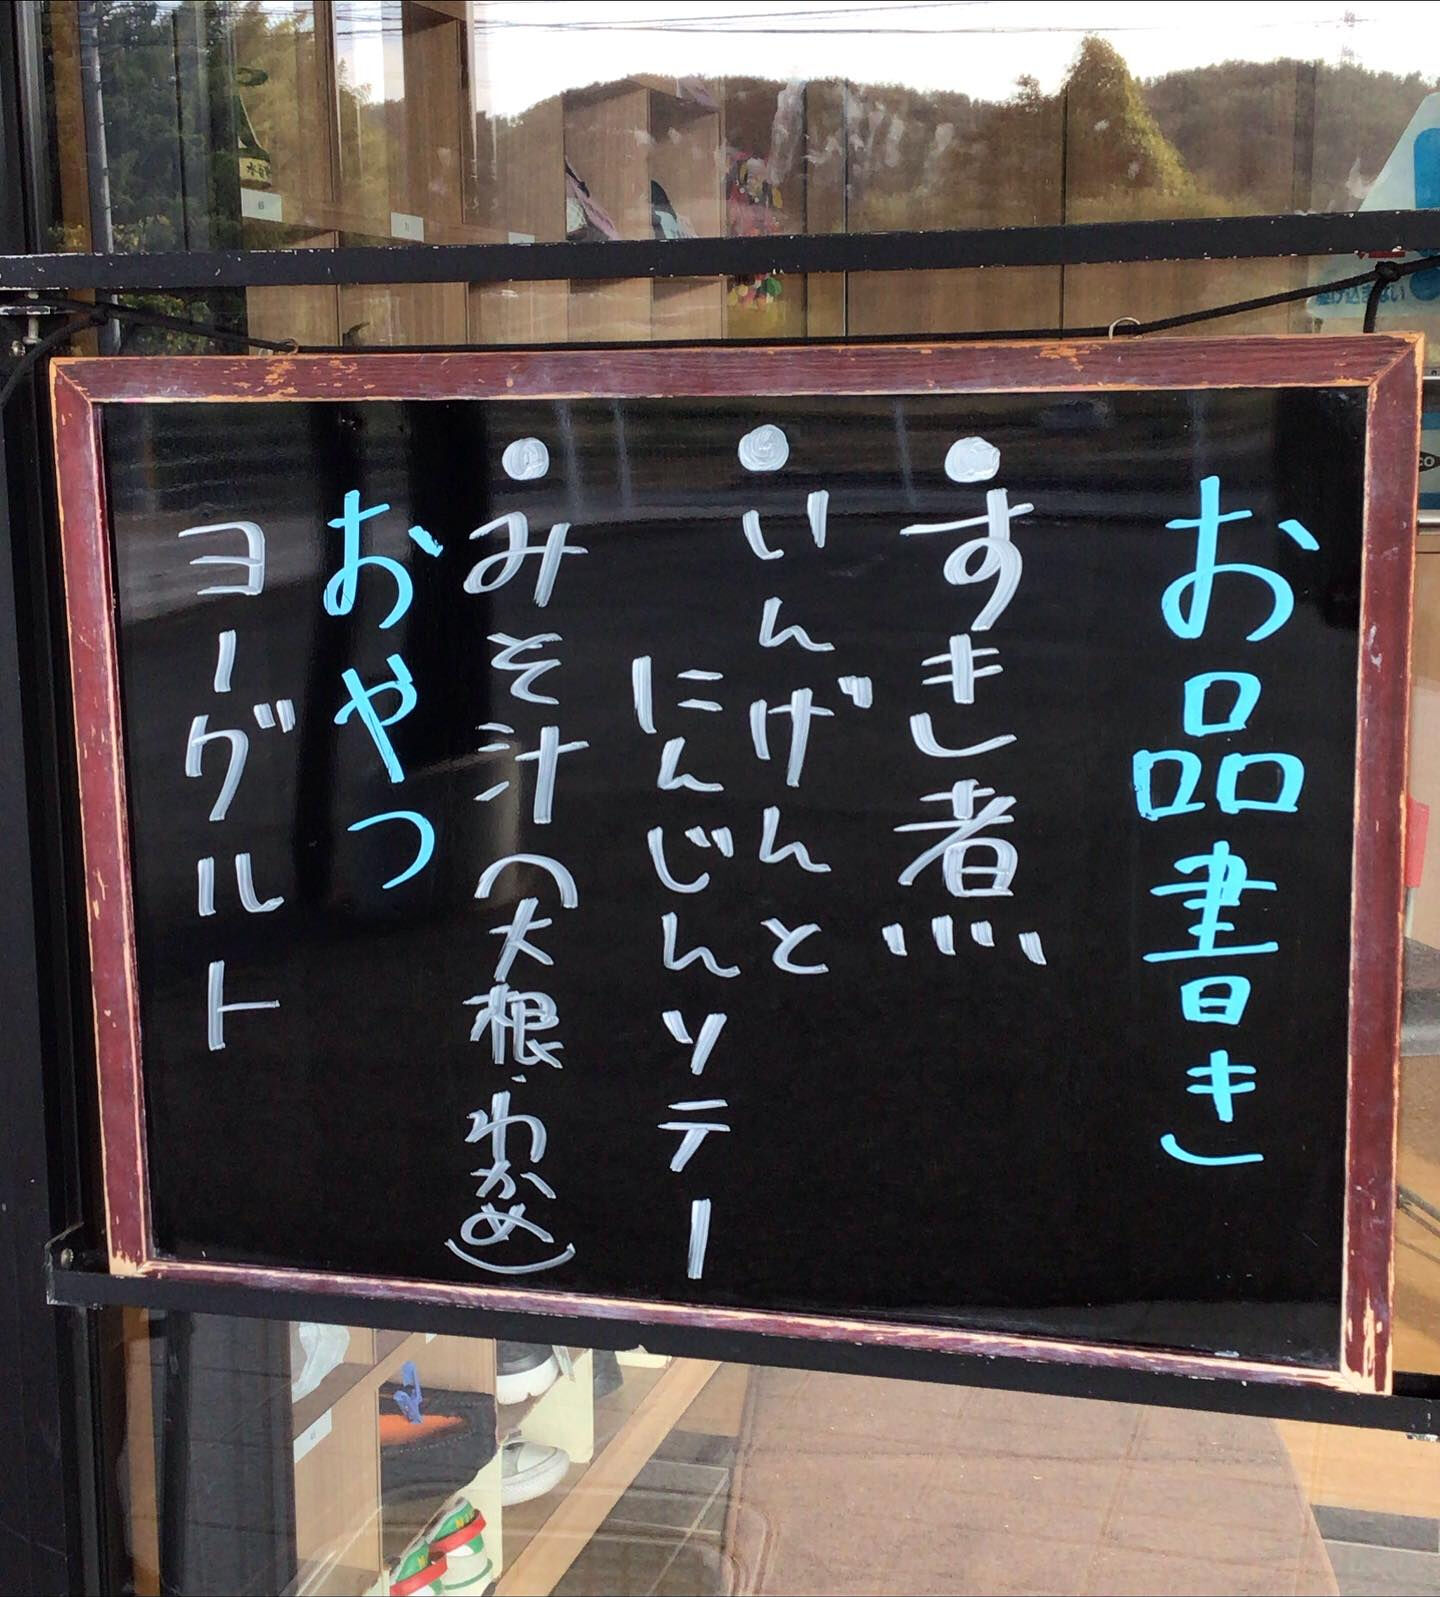 お品書き
●すき煮
●いんげんと
にんじんソテー
●みそ汁(大根、わかめ)
おやつ
ヨーグルト